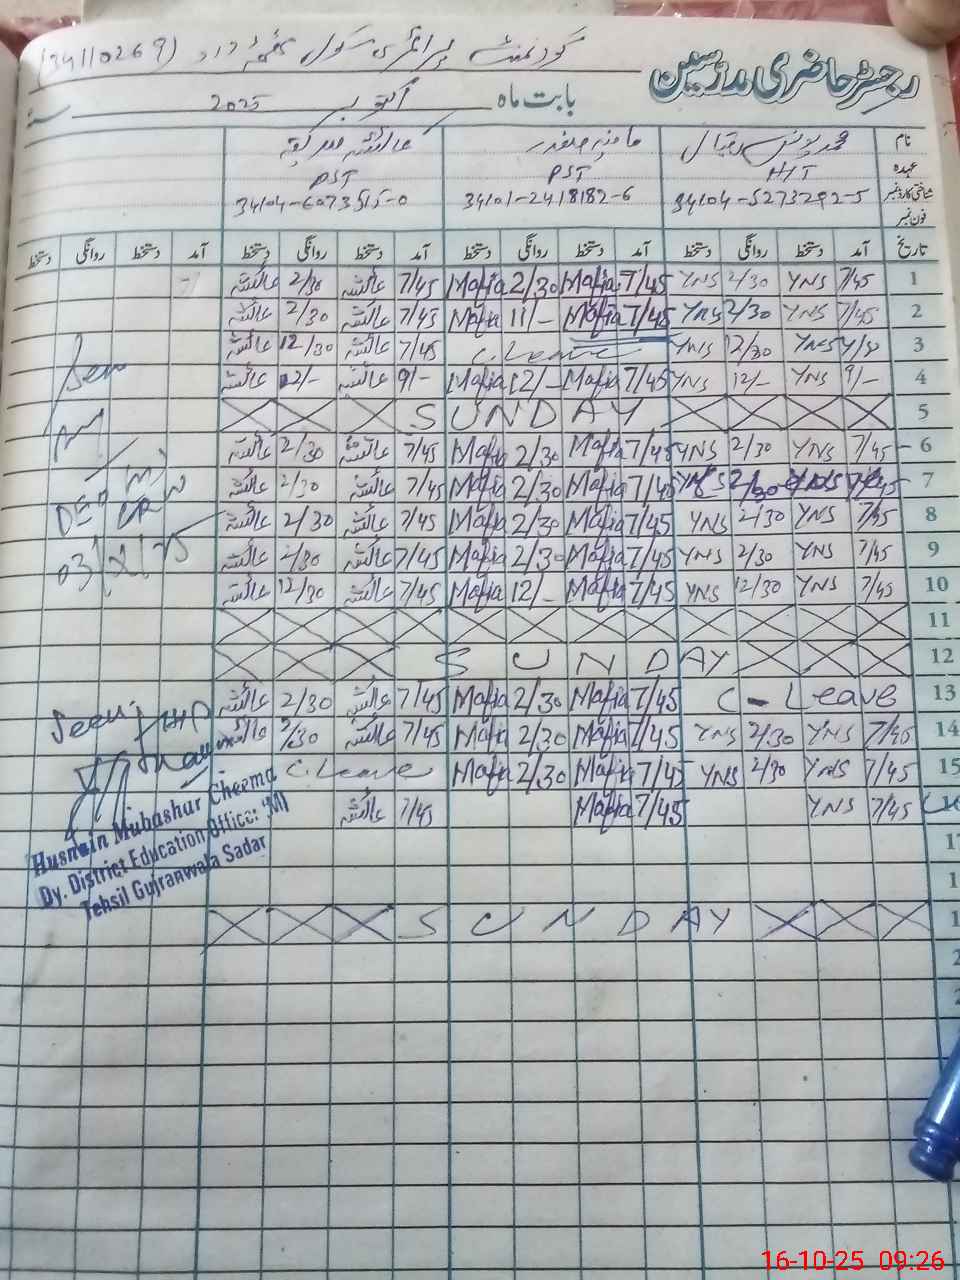 گورنمنٹ پرائمری سکول (34110269)
رجسٹر حاضری مدرسین
بابت ماہ اکتوبر 2025
نام محمد یونس مافیہ صفدر عائشہ
عہدہ HIT PST PST
شناختی کارڈ نمبر 34104-5273292-5 34101-2418182-6 34104-6073515-0
فون نمبر
تاریخ آمد دستخط روانگی دستخط آمد دستخط روانگی دستخط آمد دستخط روانگی دستخط آمد دستخط روانگی دستخط
1 7/45 YNS 2/30 YNS 7/45 Mafia 2/30 Mafia 7/45 عائشہ 2/30 عائشہ
2 7/45 YNS 2/30 YNS 7/45 Mafia 11/- Mafia 7/45 عائشہ 2/30 عائشہ
3 YNS 12/30 YNS C.Leave 7/45 عائشہ 12/30 عائشہ
4 9/- YNS 12/- YNS 7/45 Mafia 12/- Mafia 9/- عائشہ 12/- عائشہ
5 SUNDAY
6 7/45 YNS 2/30 YNS 7/45 Mafia 2/30 Mafia 7/45 عائشہ 2/30 عائشہ
7 7/45 YNS 2/30 YNS 7/45 Mafia 2/30 Mafia 7/45 عائشہ 2/30 عائشہ
8 7/45 YNS 2/30 YNS 7/45 Mafia 2/30 Mafia 7/45 عائشہ 2/30 عائشہ
9 7/45 YNS 2/30 YNS 7/45 Mafia 2/30 Mafia 7/45 عائشہ 2/30 عائشہ
10 7/45 YNS 12/30 YNS 7/45 Mafia 12/- Mafia 7/45 عائشہ 12/30 عائشہ
11
12 SUNDAY
13 C-Leave 7/45 Mafia 2/30 Mafia 7/45 عائشہ 2/30 عائشہ
14 7/45 YNS 2/30 YNS 7/45 Mafia 2/30 Mafia 7/45 عائشہ 2/30 عائشہ
15 7/45 YNS 2/30 YNS 7/45 Mafia 2/30 Mafia C.Leave
16 7/45 YNS 7/45 Mafia 7/45 عائشہ
SUNDAY
Seen
03/X/25
Seen
Husnain Mubashar Cheema
Dy. District Education Officer (M)
Tehsil Gujranwala Sadar
16-10-25 09:26